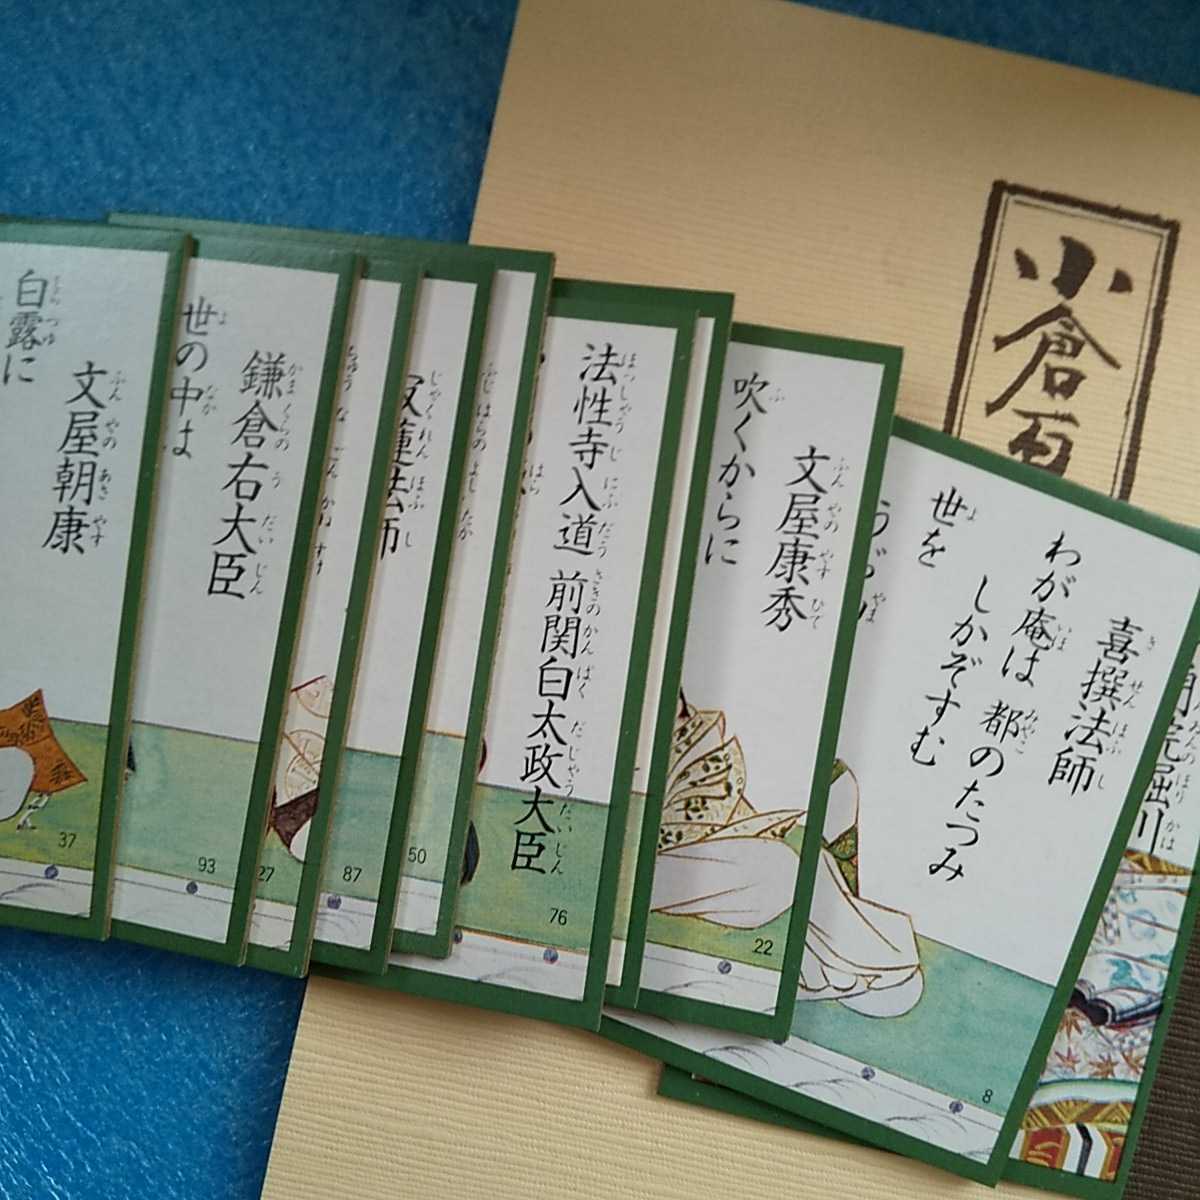 小倉百
喜撰法師
わが庵は 都のたつみ
しかぞすむ
世を
8
文屋康秀
吹くからに
22
法性寺入道
前関白太政大臣
76
50
87
27
鎌倉右大臣
世の中は
93
文屋朝康
白露に
37